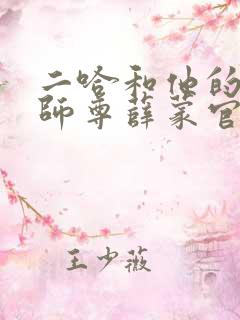 二哈和他的
师尊薛蒙官
王少薇